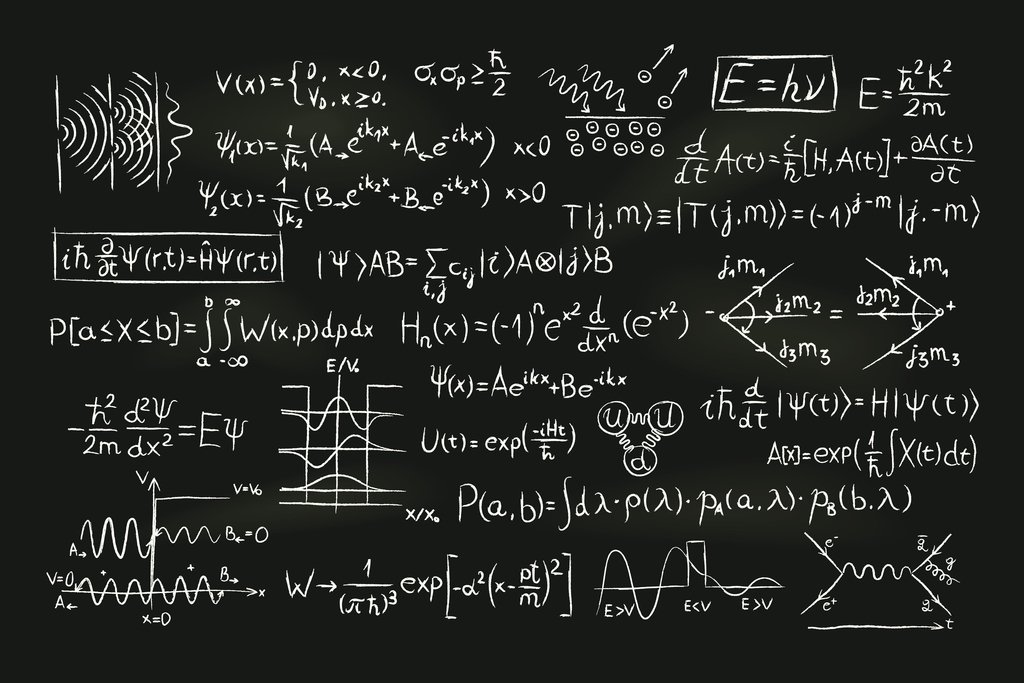 V(x)={0, x<0,
V₀, x≥0.
σₓσₚ≥ℏ/2
E=hν
E=ℏ²k²/2m
Ψ₁(x)=1/√k₁ (A→e^{ik₁x}+A←e^{-ik₁x}) x<0
⊖ ⊖
⊖ ⊖ ⊖ ⊖ ⊖
⊖ ⊖ ⊖ ⊖ ⊖
d/dt A(t)=i/ℏ[H,A(t)]+∂A(t)/∂t
Ψ₂(x)=1/√k₂ (B→e^{ik₂x}+B←e^{-ik₂x}) x>0
T|j,m⟩≡|T(j,m)⟩=(-1)^{j-m}|j.-m⟩
iℏ ∂/∂t Ψ(r,t)=ĤΨ(r,t)
|Ψ⟩AB=∑_{i,j} c_{ij}|i⟩A⊗|j⟩B
j₁m₁ j₁m₁
- j₂m₂ = j₂m₂ +
j₃m₃ j₃m₃
P[a≤X≤b]=∫_a^b ∫_{-∞}^∞ W(x,p)dpdx
Hₙ(x)=(-1)ⁿe^{x²} d/dxⁿ(e^{-x²})
E/V₀
Ψ(x)=Ae^{ikx}+Be^{-ikx}
-ℏ²/2m d²Ψ/dx²=EΨ
U(t)=exp(-iHt/ℏ)
u u
d
iℏ d/dt |Ψ(t)⟩=H|Ψ(t)⟩
A[x]=exp(1/ℏ ∫X(t)dt)
x/x₀
P(a,b)=∫dλ·ρ(λ)·p_A(a,λ)·p_B(b,λ)
V
V=V₀
A→ B←=0
V=0 + + B→ x
A←
x=0
W→1/(πℏ)³ exp[-α²(x-pt/m)²]
E>V E<V E>V
e⁻ q̄
g
e⁺ q
t